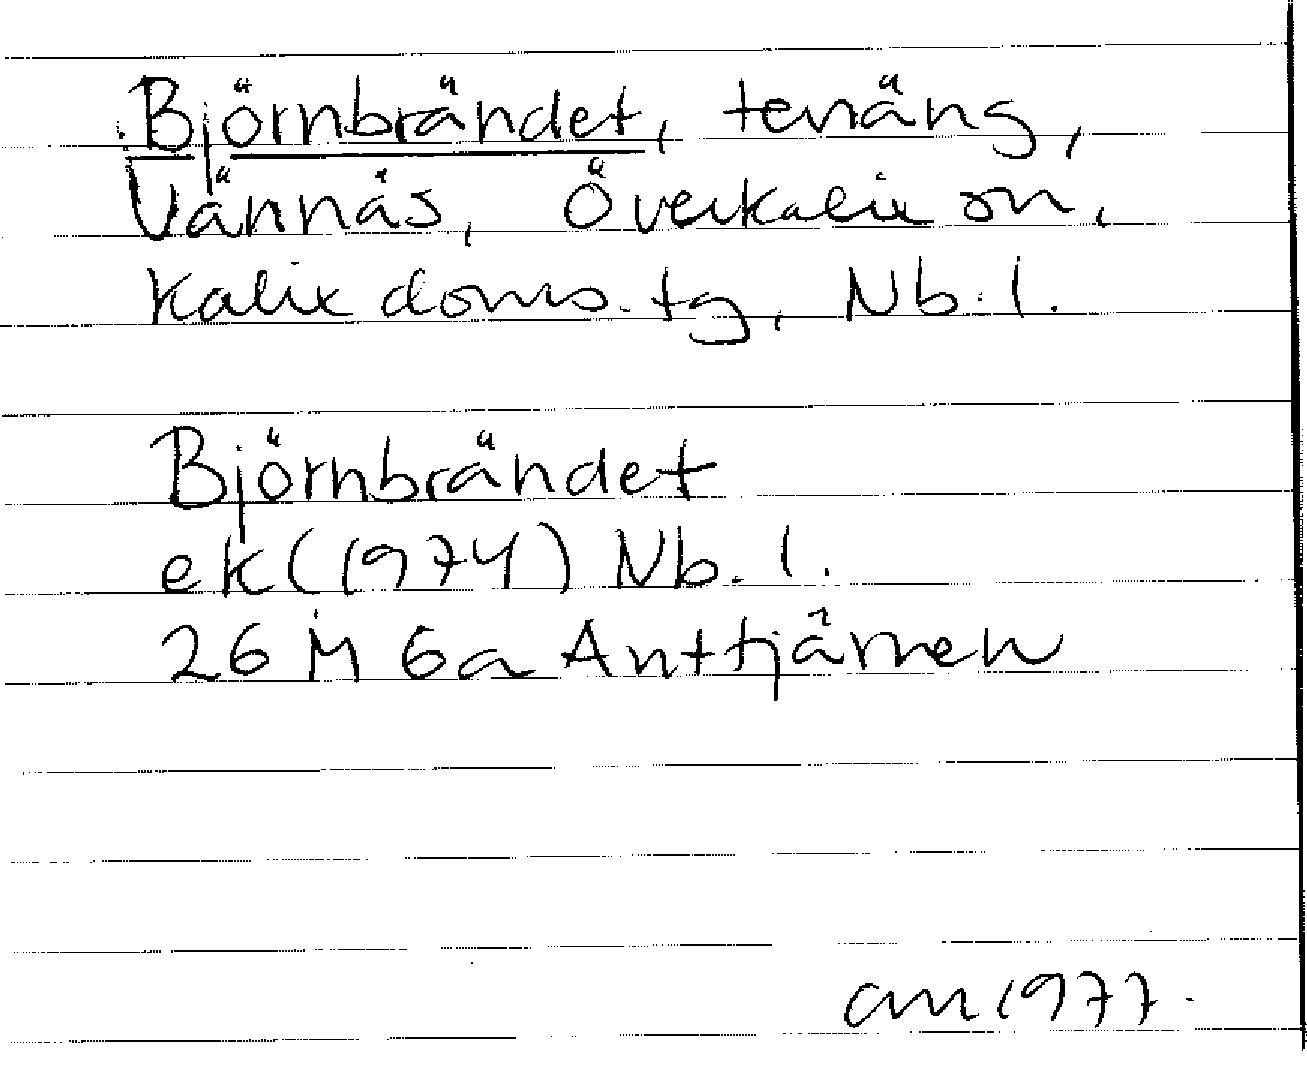 Björnbrändet, teräng,
Vännäs, Överkalix sn,
Kalix doms. tg, Nb. l.
Björnbrändet
ek (1974) Nb. l.
26 M 6a Anttjärnen
am 1977.